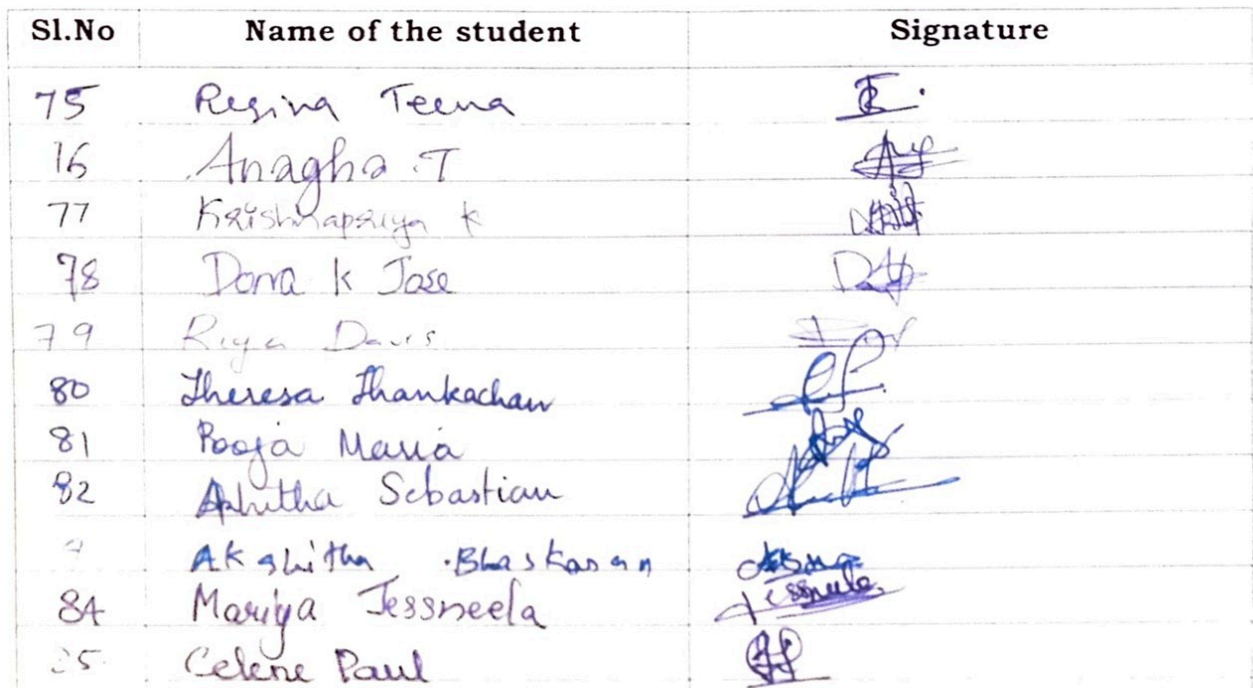 Sl.No Name of the student Signature
75 Regina Teena
16 Anagha .T
77 Krishnapriya k
78 Dona k Jose
79 Riya Davis
80 Theresa Thankachan
81 Pooja Maria
82 Ashitha Sebastian
Akshitha .Bhaskaran
84 Mariya Jessneela Jessneela
85 Celene Paul